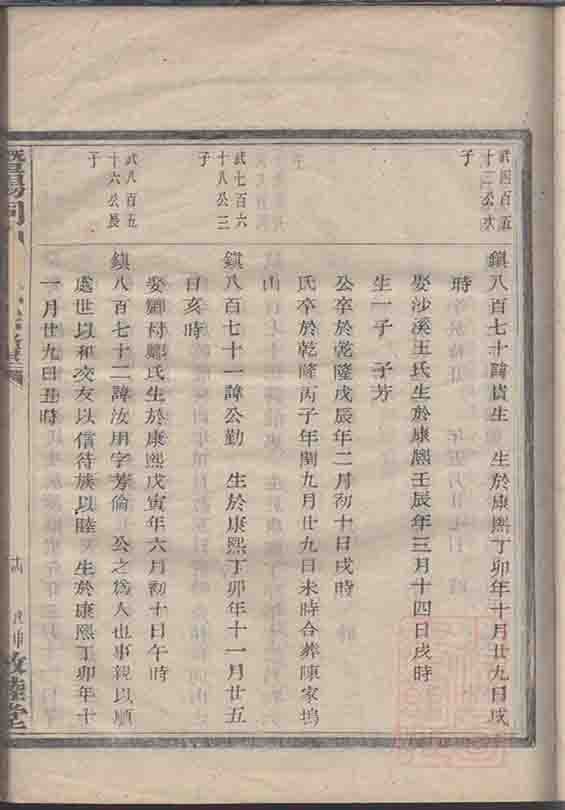 武四百五
十二公次
子
鎮八百七十諱貴生 生於康熙丁卯年十月廿九日戌
時
娶沙溪王氏生於康熙壬辰年三月十四日戌時
生一子 子芳
公卒於乾隆戊辰年二月初十日戌時
氏卒於乾隆丙子年閏九月廿九日未時合葬陳家塢
山
武七百六
十八公三
子
鎮八百七十一諱公勤 生於康熙丁卯年十一月廿五
日亥時
娶 村 氏生於康熙戊寅年六月初十日午時
武八百五
十六公長
子
鎮八百七十二諱汝用字芳倫 公之爲人也事親以順
處世以和交友以信待族以睦 生於康熙丁卯年十
一月廿九日丑時
暨陽
敦睦堂